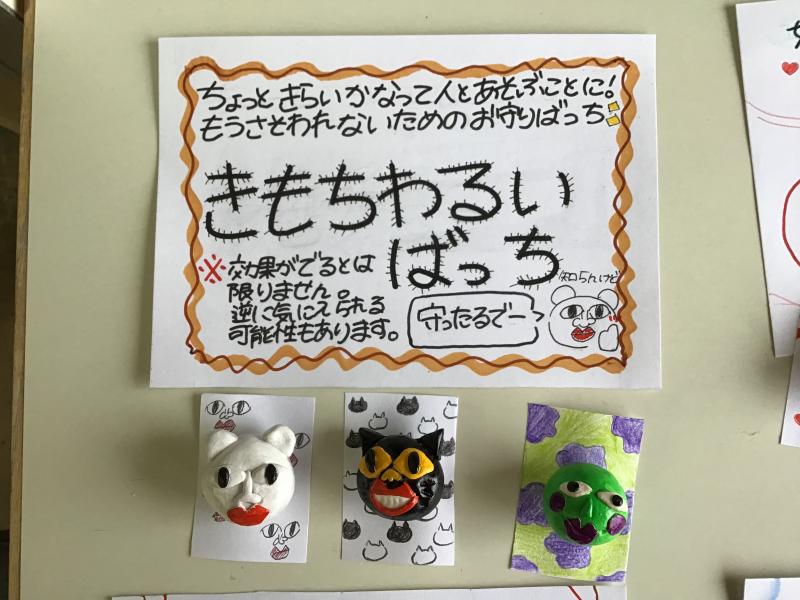 ちょっときらいかなって人とあそぶことに!
もうさそわれないためのお守りばっち
きもちわるい
ばっち
※効果がでるとは
限りません。
逆に気にえられる
可能性もあります。
守ったるでー
知らんけど